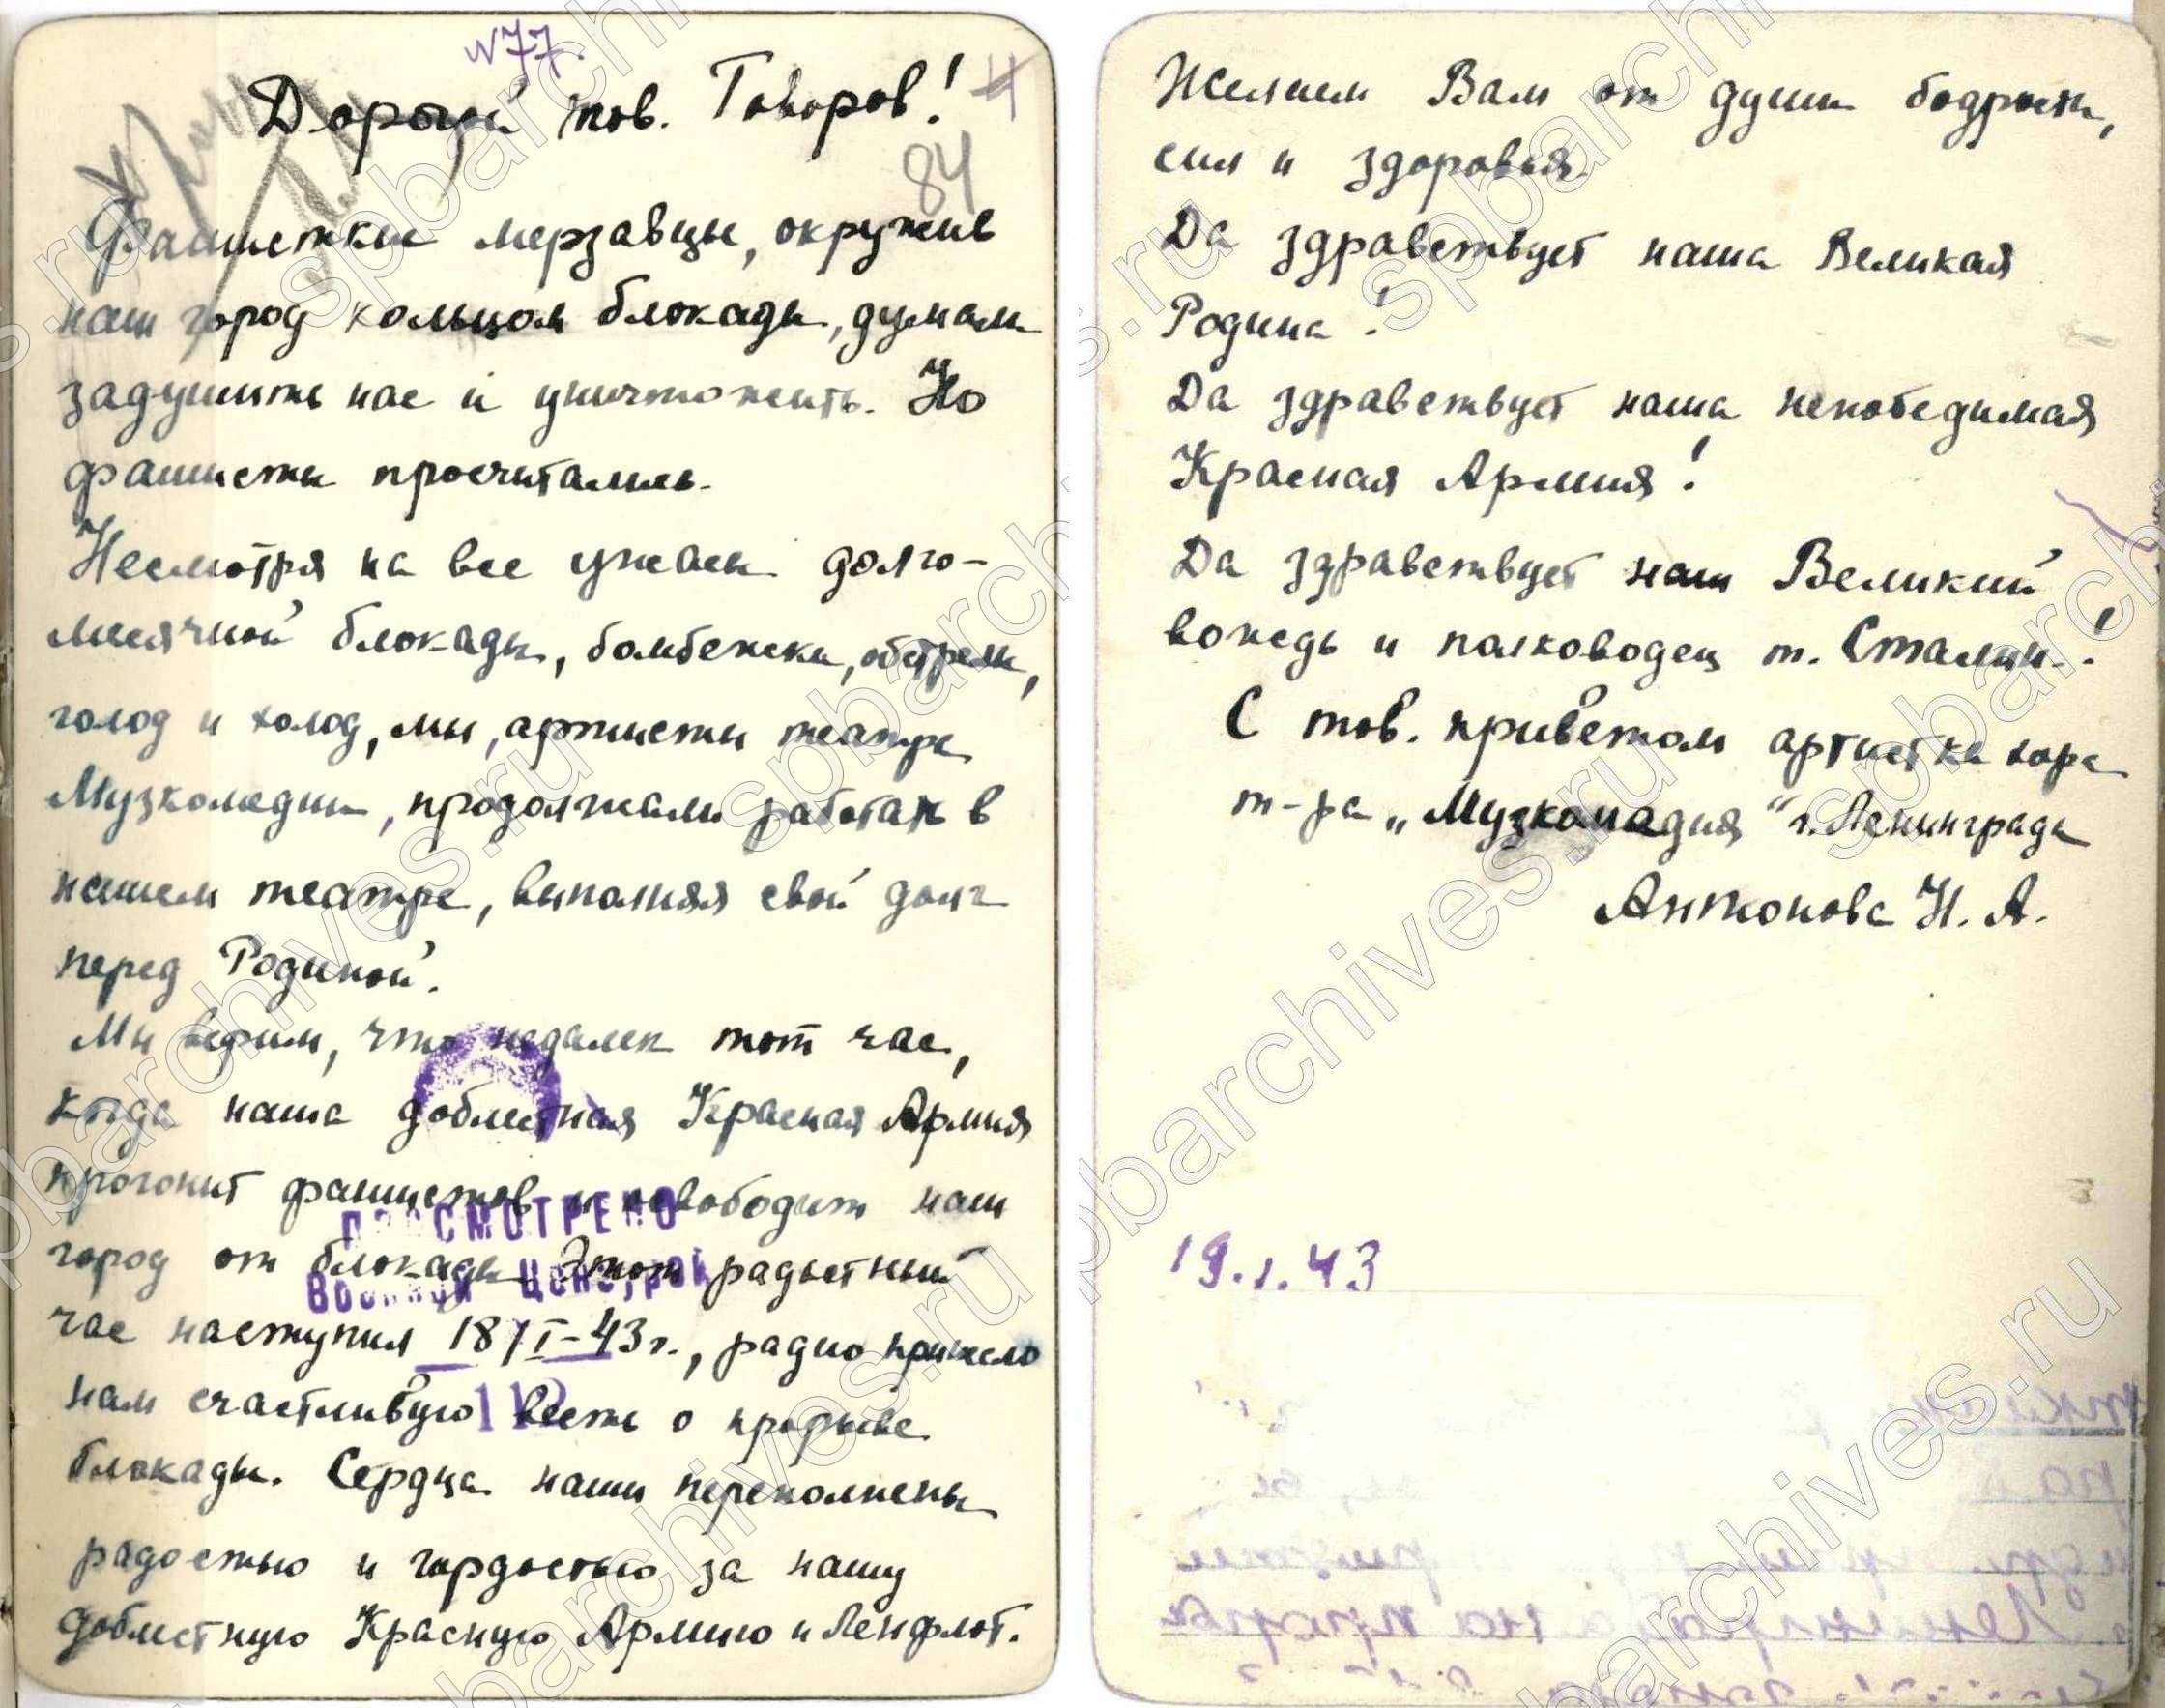 №77.
Дорогой тов. Говоров!
84
Фашистские мерзавцы, окружив
наш город кольцом блокады, думали
задушить нас и уничтожить. Но
фашисты просчитались.
Несмотря на все ужасы долго-
месячной блокады, бомбежки, обстрелы,
голод и холод, мы, артисты театра
Музкомедии, продолжали работать в
нашем театре, выполняя свой долг
перед Родиной.
Мы верим, что недалек тот час,
когда наша доблестная Красная Армия
прогонит фашистов и освободит наш
ПРОСМОТРЕНО
город от блокады. Этот радостный
Военной Цензурой
час наступил 18/I-43г., радио принесло
нам счастливую весть о прорыве
блокады. Сердца наши переполнены
радостью и гордостью за нашу
доблестную Красную Армию и Ленфлот.
Желаем Вам от души бодрости,
сил и здоровья.
Да здравствует наша Великая
Родина!
Да здравствует наша непобедимая
Красная Армия!
Да здравствует наш Великий
вождь и полководец т. Сталин!
С тов. приветом артистка хора
т-ра „Музкомедия" г. Ленинграда
Антонова Н. А.
19.1.43
spbarchives.ru